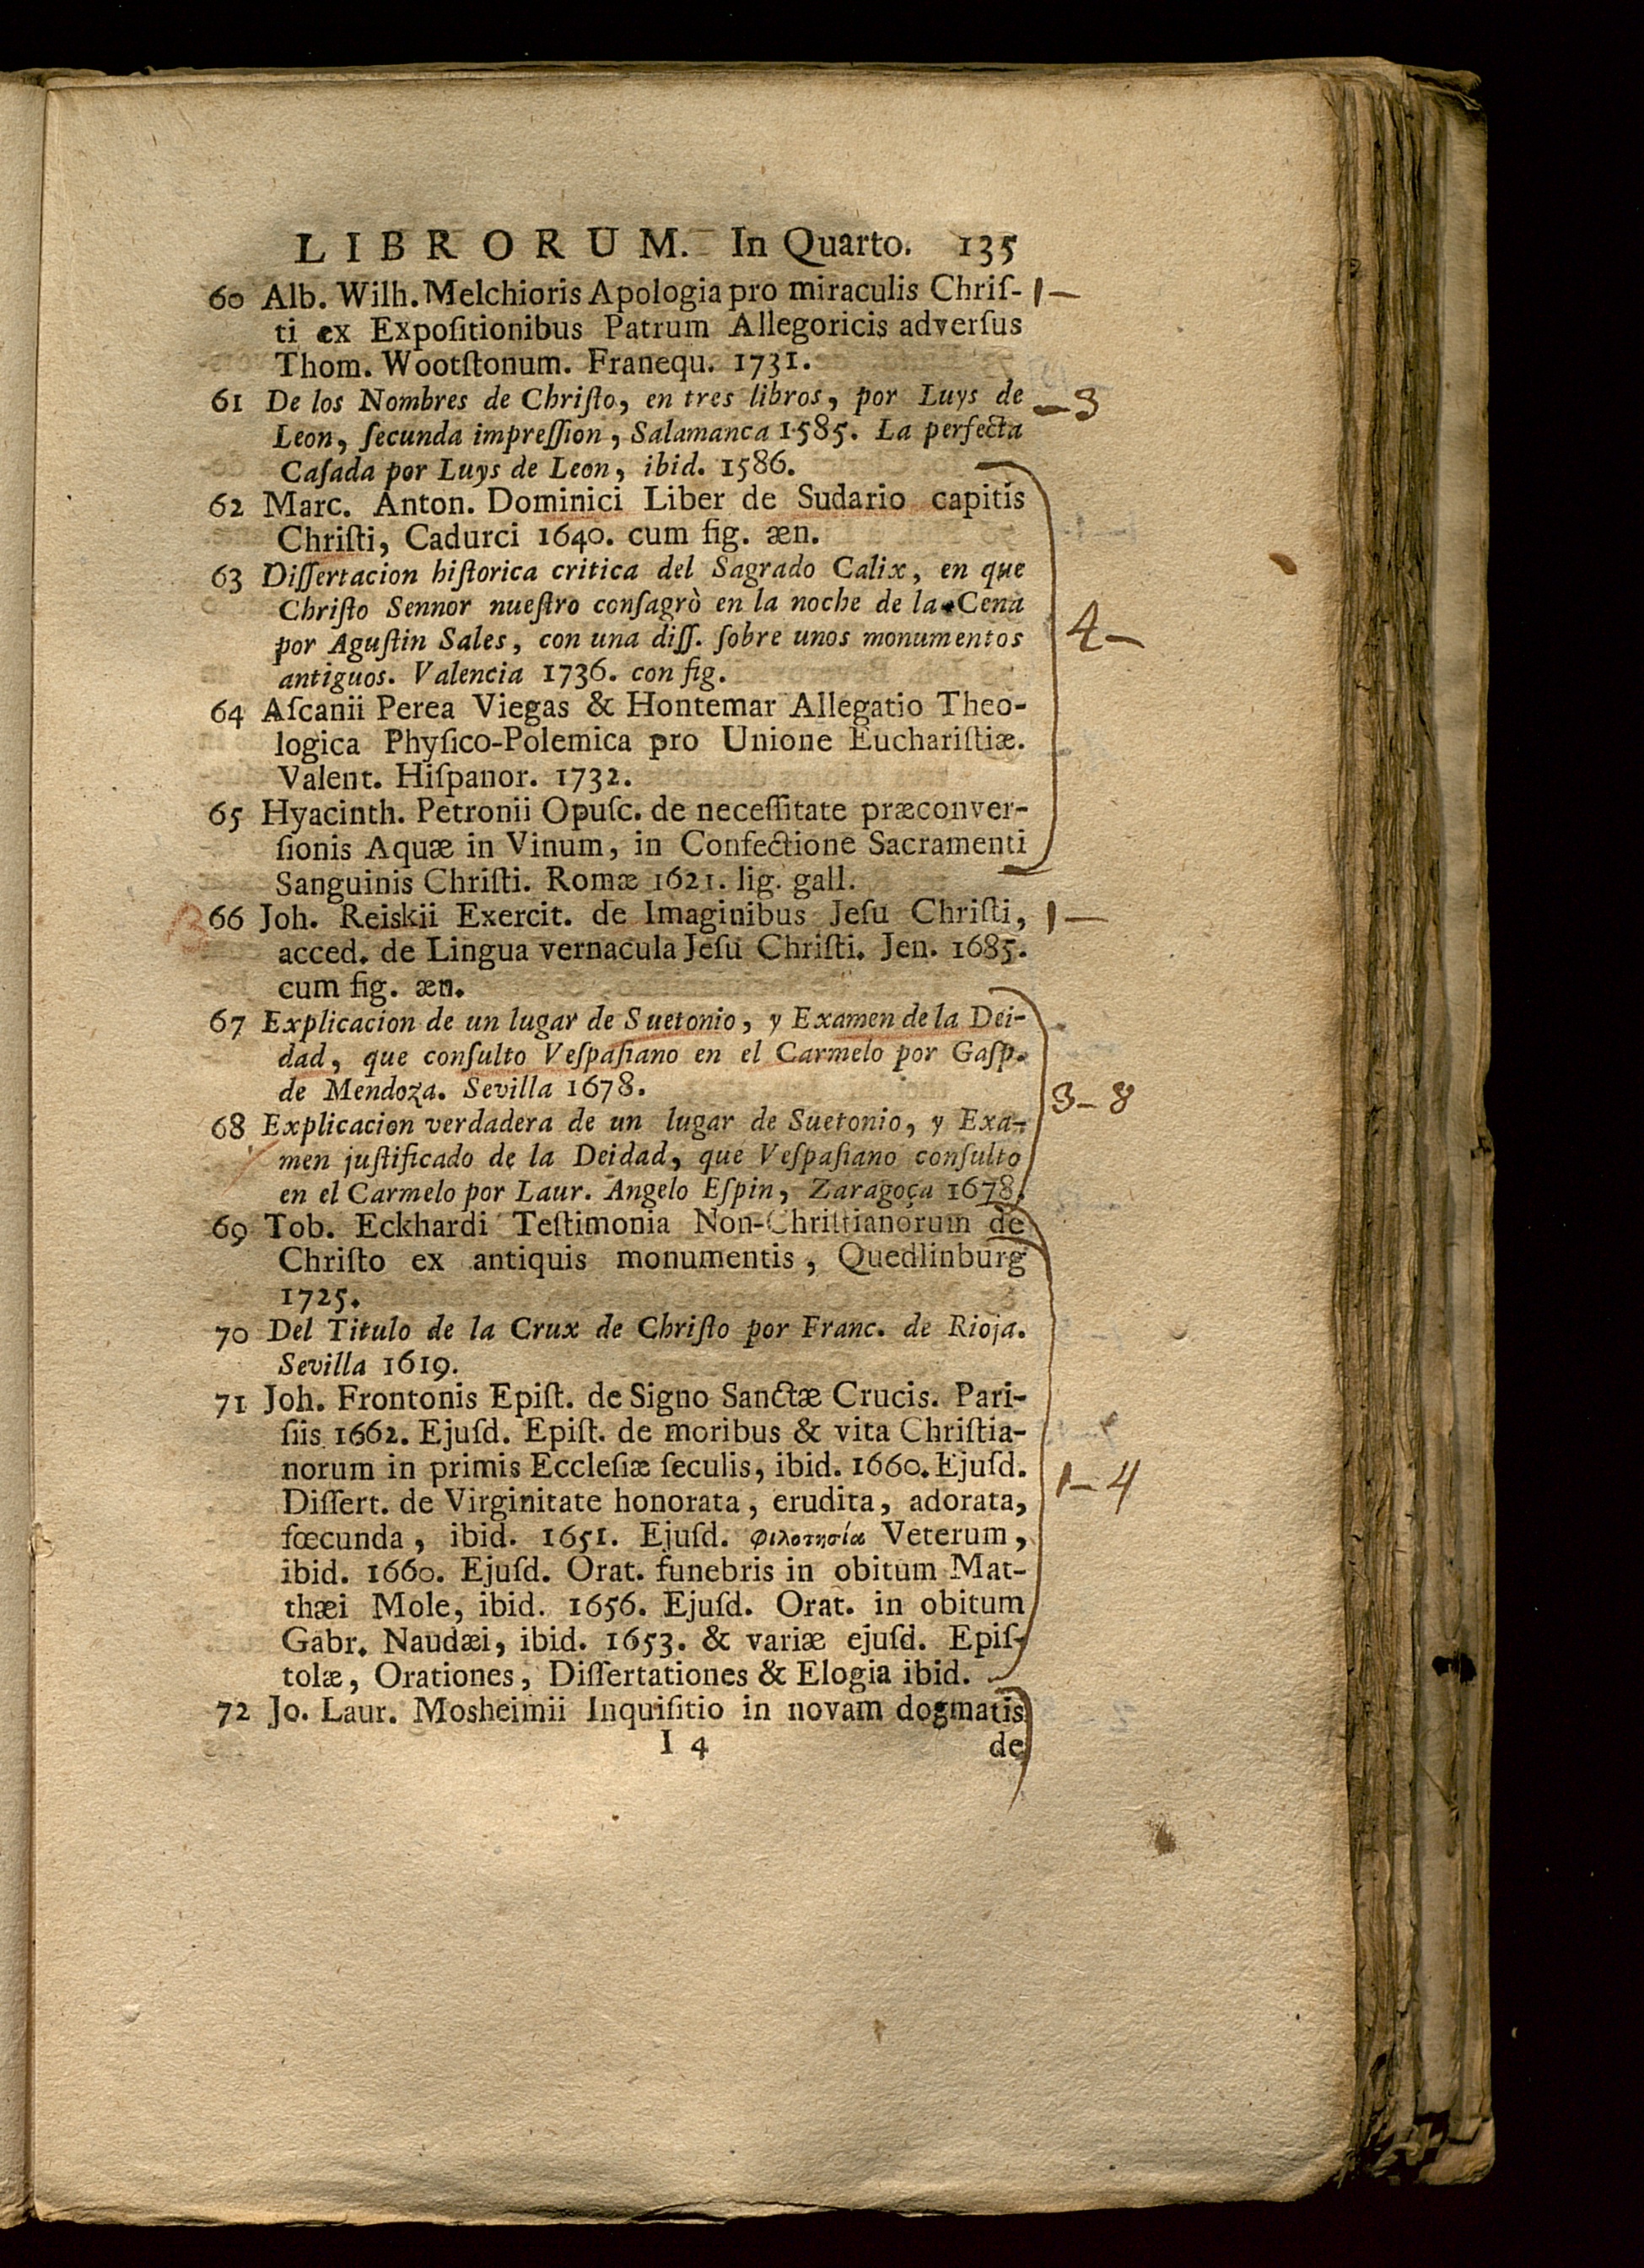 LIBRORUM. In Quarto. 135
60 Alb. Wilh. Melchioris Apologia pro miraculis Chriſ- 1 —
ti ex Expoſitionibus Patrum Allegoricis adverſus
Thom. Wootſtonum. Franequ. 1731.
61 De los Nombres de Chriſto, en tres libros, por Luys de — 3
Leon, ſecunda impreſſion, Salamanca 1585. La perfecta
Caſada por Luys de Leon, ibid. 1586.
62 Marc. Anton. Dominici Liber de Sudario capitis
Chriſti, Cadurci 1640. cum fig. æn.
63 Diſſertacion hiſtorica critica del Sagrado Calix, en que
Chriſto Sennor nueſtro conſagrò en la noche de la Cena
por Aguſtin Sales, con una diſſ. ſobre unos monumentos 4 —
antiguos. Valencia 1736. con fig.
64 Aſcanii Perea Viegas & Hontemar Allegatio Theo-
logica Phyſico-Polemica pro Unione Euchariſtiæ.
Valent. Hiſpanor. 1732.
65 Hyacinth. Petronii Opuſc. de neceſſitate præconver-
ſionis Aquæ in Vinum, in Confectione Sacramenti
Sanguinis Chriſti. Romæ 1621. lig. gall.
66 Joh. Reiskii Exercit. de Imaginibus Jeſu Chriſti, 1 —
acced. de Lingua vernacula Jeſu Chriſti. Jen. 1685.
cum fig. æn.
67 Explicacion de un lugar de Suetonio, y Examen de la Dei-
dad, que conſulto Veſpaſiano en el Carmelo por Gaſp.
de Mendoza. Sevilla 1678. 3 — 8
68 Explicacion verdadera de un lugar de Suetonio, y Exa-
men juſtificado de la Deidad, que Veſpaſiano conſulto
en el Carmelo por Laur. Angelo Eſpin, Zaragoça 1678.
69 Tob. Eckhardi Teſtimonia Non-Chriſtianorum de
Chriſto ex antiquis monumentis, Quedlinburg
1725.
70 Del Titulo de la Crux de Chriſto por Franc. de Rioja.
Sevilla 1619.
71 Joh. Frontonis Epiſt. de Signo Sanctæ Crucis. Pari-
ſiis 1662. Ejuſd. Epiſt. de moribus & vita Chriſtia-
norum in primis Eccleſiæ ſeculis, ibid. 1660. Ejuſd.
Diſſert. de Virginitate honorata, erudita, adorata, 1 — 4
fœcunda, ibid. 1651. Ejuſd. φιλοτησία Veterum,
ibid. 1660. Ejuſd. Orat. funebris in obitum Mat-
thæi Mole, ibid. 1656. Ejuſd. Orat. in obitum
Gabr. Naudæi, ibid. 1653. & variæ ejuſd. Epiſ-
tolæ, Orationes, Diſſertationes & Elogia ibid.
72 Jo. Laur. Mosheimii Inquiſitio in novam dogmatis
I 4 de